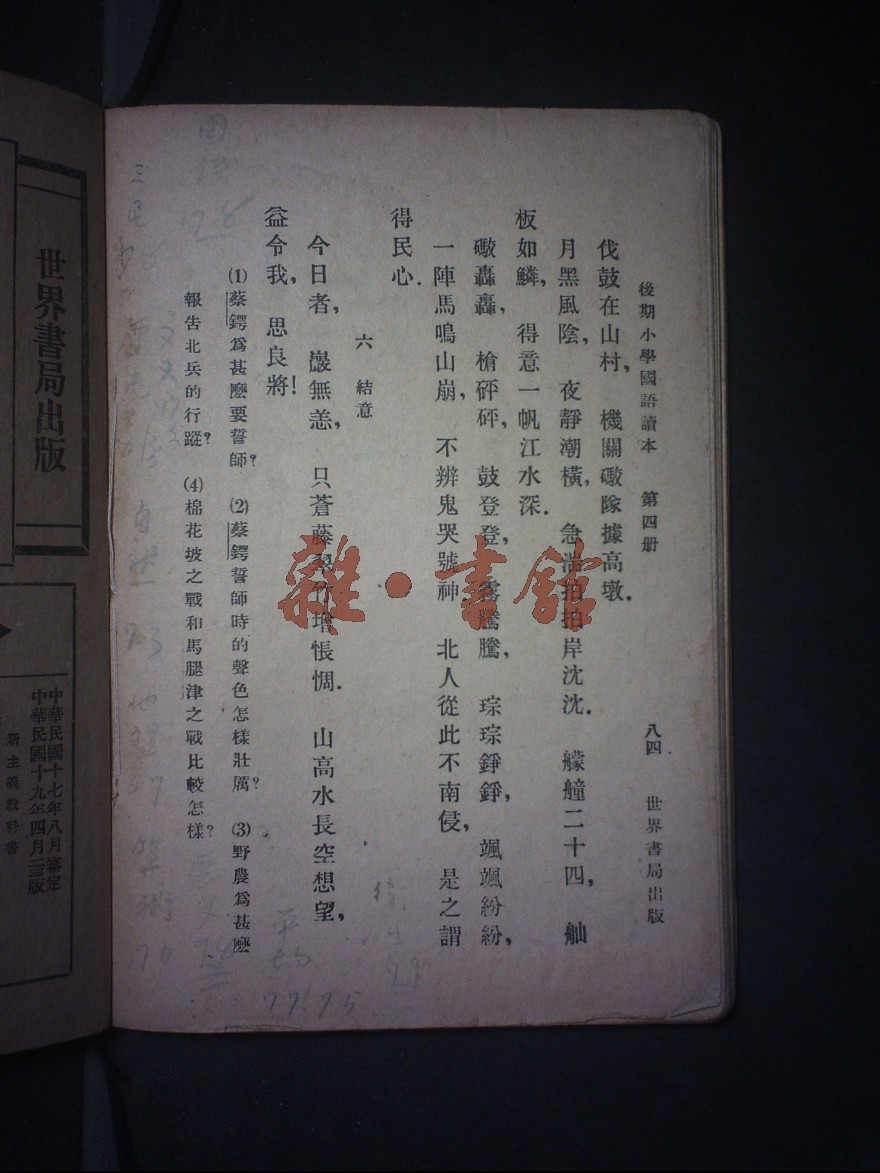 後期小學國語讀本 第四册 八四 世界書局出版
伐鼓在山村, 機關礮隊據高墩.
月黑風陰, 夜靜潮橫, 急湍拍拍岸沈沈. 艨艟二十四, 舢
板如鱗, 得意一帆江水深.
礮轟轟, 槍砰砰, 鼓登登, 霧騰騰, 琮琮錚錚, 颯颯紛紛,
一陣馬鳴山崩, 不辨鬼哭號神. 北人從此不南侵, 是之謂
得民心.
六 結意
今日者, 巖無恙, 只蒼藤翠竹增悵惆. 山高水長空想望,
益令我, 思良將!
(1)蔡鍔爲甚麼要誓師? (2)蔡鍔誓師時的聲色怎樣壯厲? (3)野農爲甚麼
報告北兵的行蹤? (4)棉花坡之戰和馬腿津之戰比較怎樣?
雜·書館
平均
77.75
自然
地理
算術
70
世界書局出版
中華民國十七年八月審定
中華民國十九年四月三版
新主義教科書